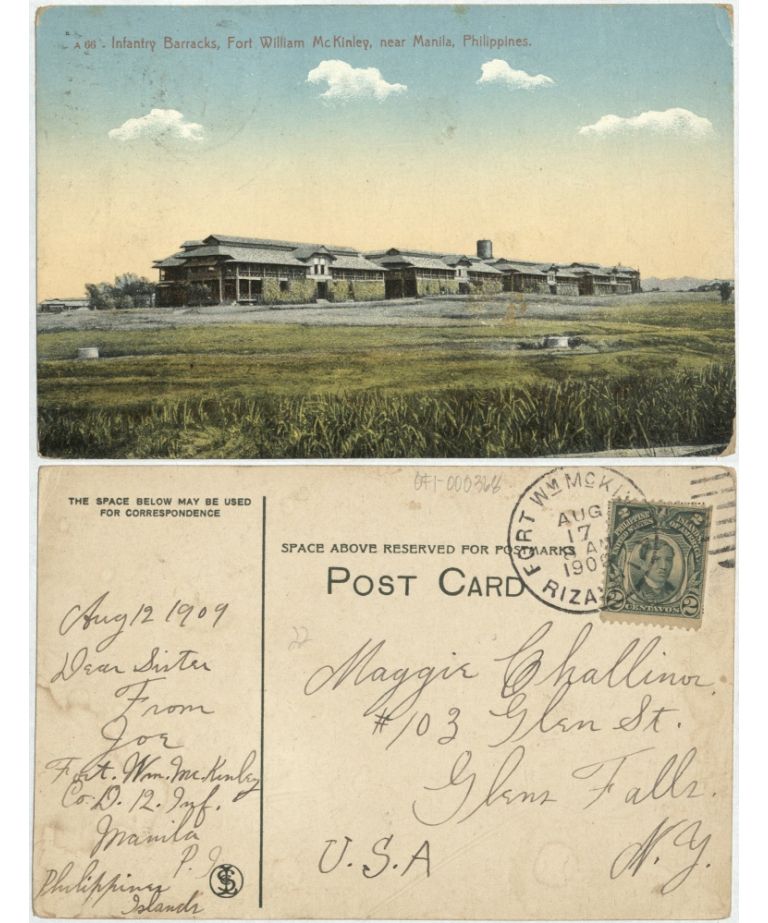 A 66 - Infantry Barracks, Fort William McKinley, near Manila, Philippines.
THE SPACE BELOW MAY BE USED
FOR CORRESPONDENCE
Aug 12 1909
Dear Sister
From
Joe
Fort. Wm. McKinley
Co. D. 12. Inf.
Manila
P. I.
Philippines
Islands
SPACE ABOVE RESERVED FOR POSTMARKS
POST CARD
FORT WM MCKIN
AUG
17
AM
190
RIZA
PHILIPPINE ISLANDS
UNITED STATES OF AMERICA
2 CENTAVOS 2
Maggie Challinor.
#103 Glen St.
Glens Falls.
U.S.A N.Y.